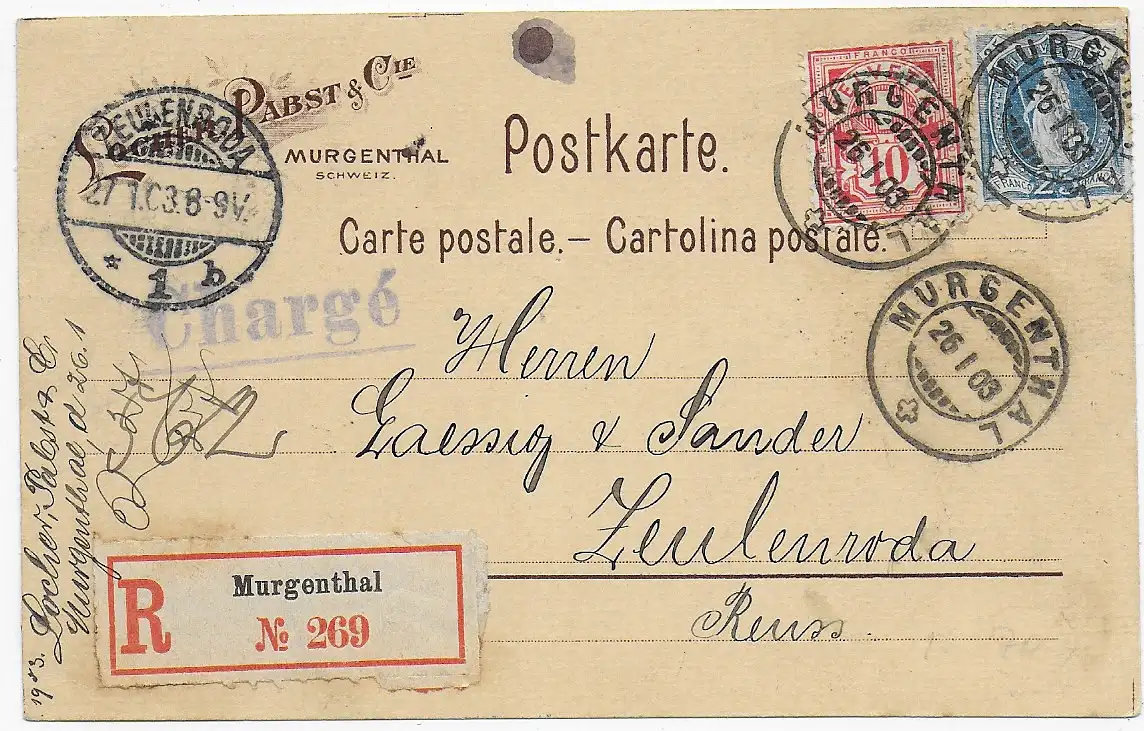 PABST & CIE
MURGENTHAL
SCHWEIZ.
Postkarte.
Carte postale. – Cartolina postale.
FRANCO
HELVETIA
10
FRANCO
25
MURGENTHAL
26 I 03
MURGENTHAL
26 I 03
MURGENTHAL
26 I 03
ZEULENRODA
27 1.03.8-9V.
* 1 b
Chargé
Herren
Laessig & Sander
Zeulenroda
Reuss.
Locher, Pabst & Cie
Murgenthal, d 26.1
1903.
R
Murgenthal
№ 269